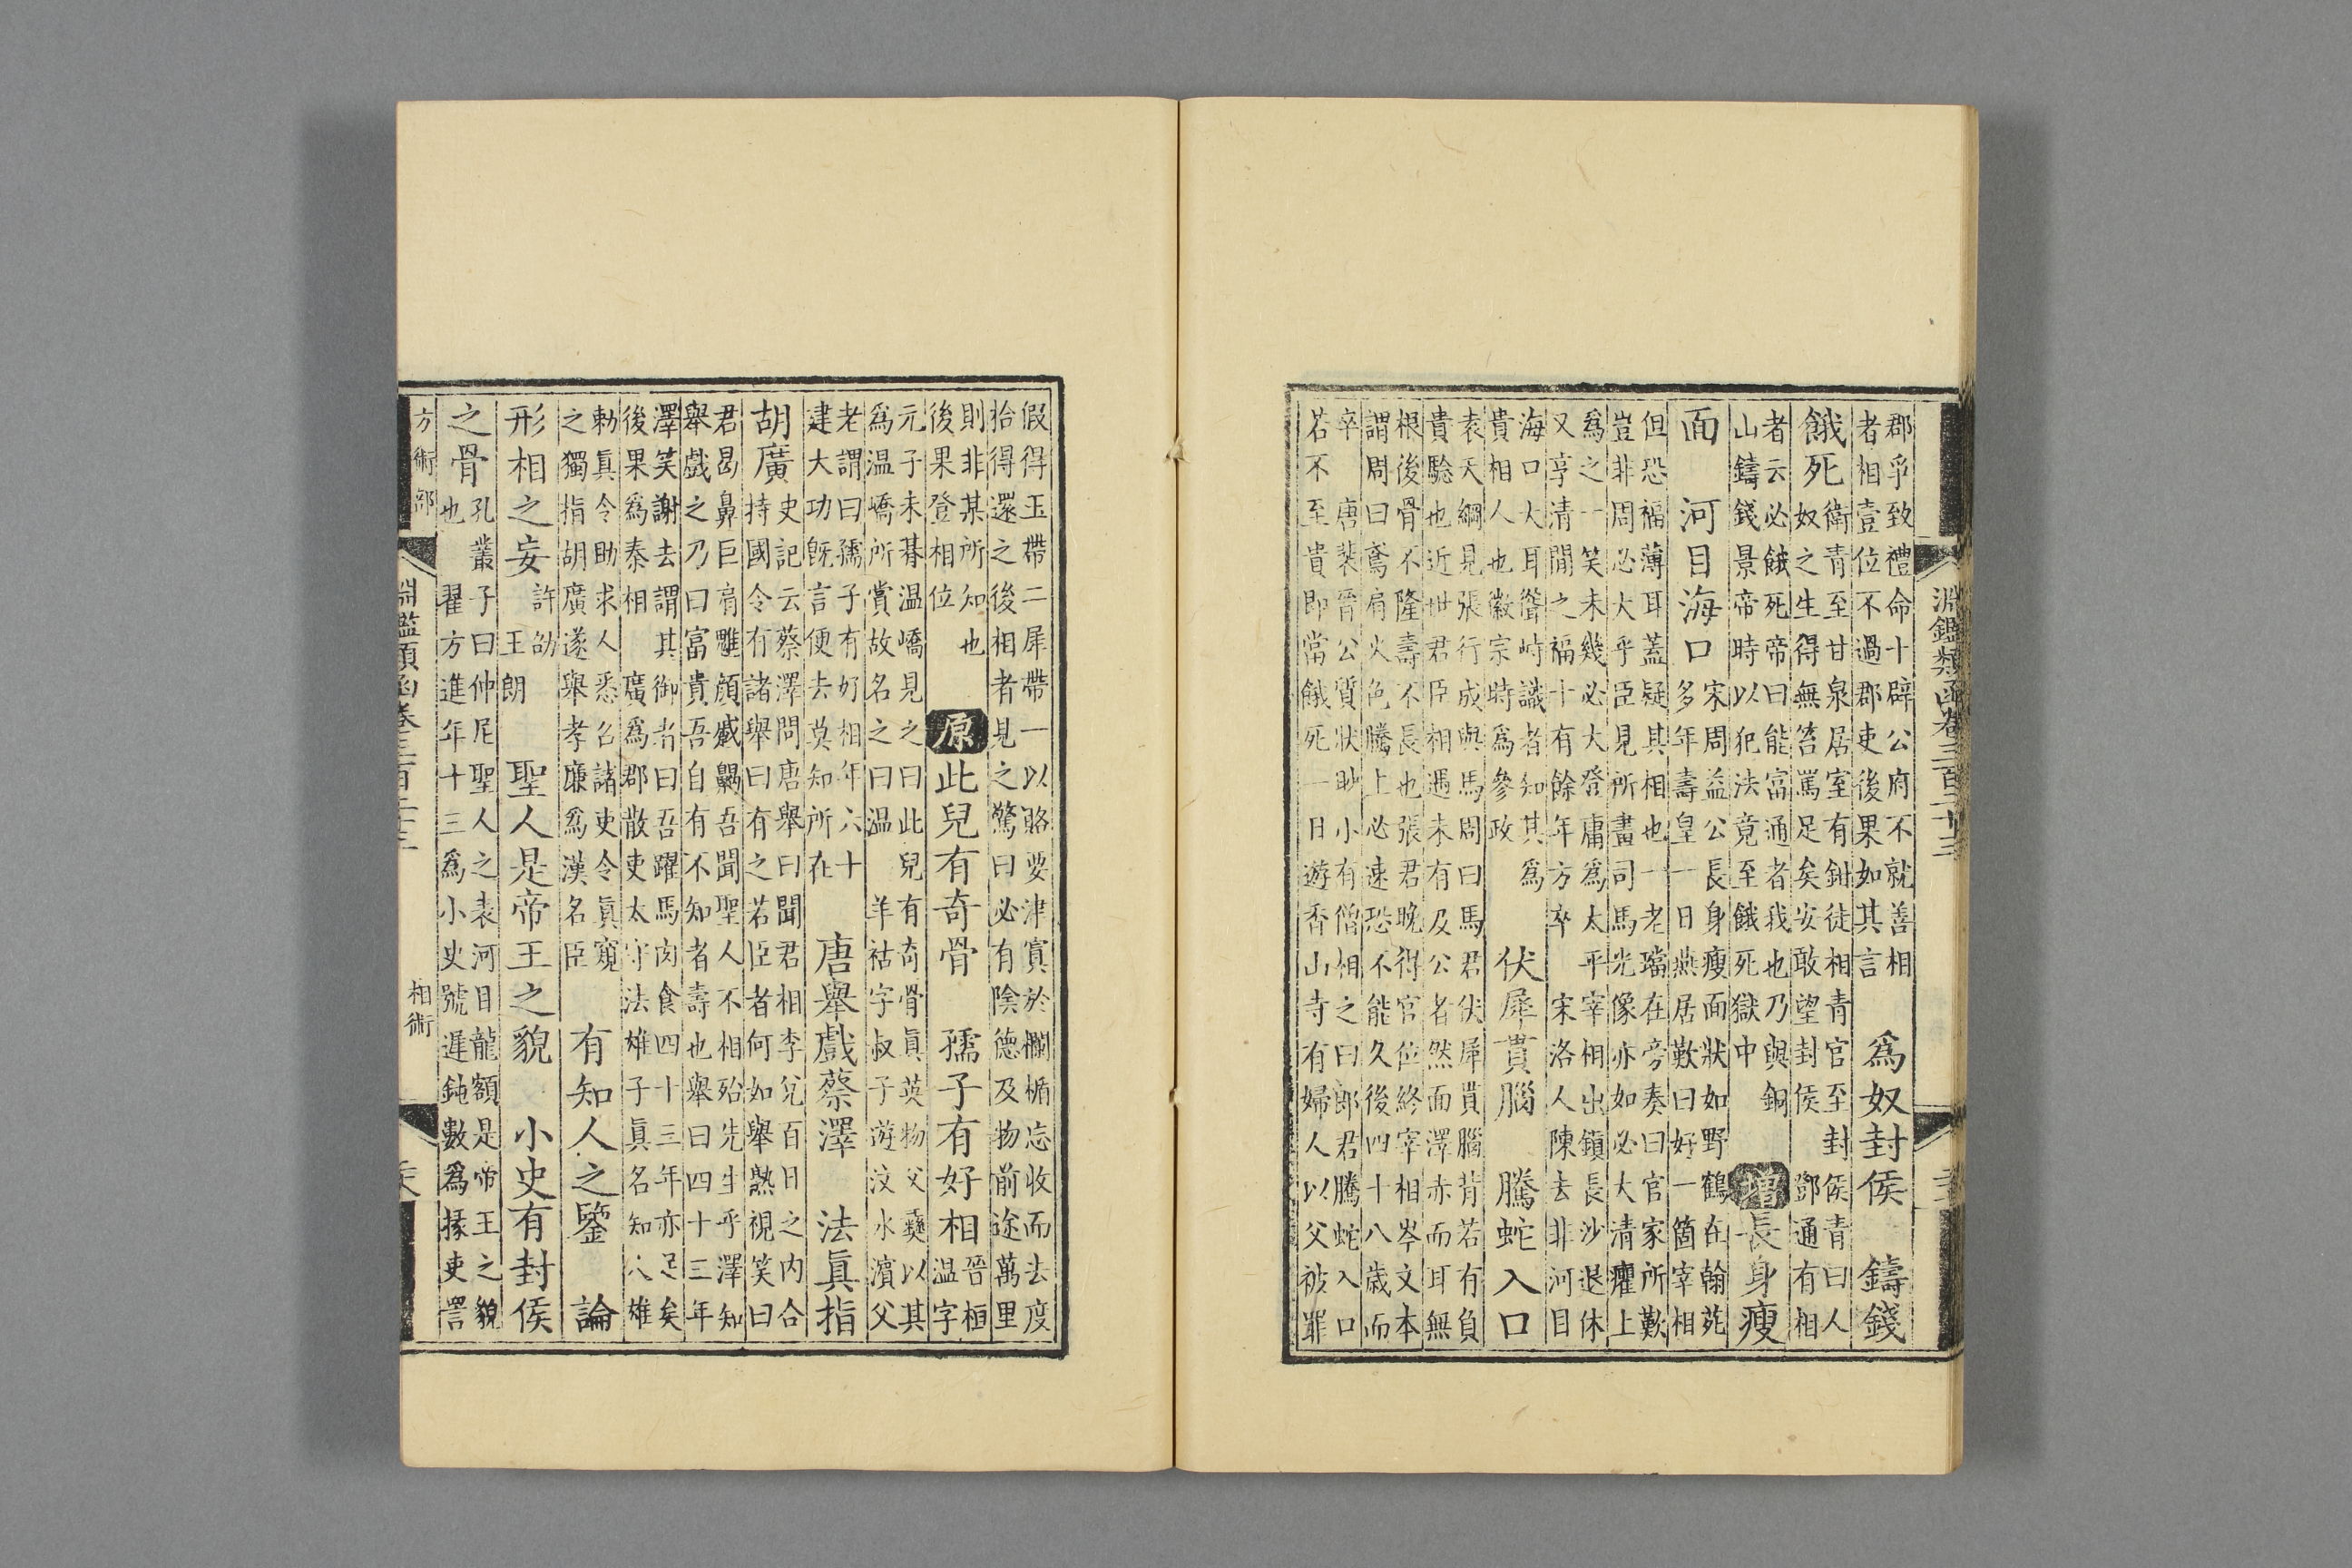 淵鑑類函卷三百二十三
郡爭致禮命十辟公府不就善相
者相壹位不過郡吏後果如其言
爲奴封侯 鑄錢
餓死
衛青至甘泉居室有鉗徒相青官至封侯青曰人
奴之生得無笞罵足矣安敢望封侯 鄧通有相
者云必餓死帝曰能富通者我也乃與銅
山鑄錢景帝時以犯法竟至餓死獄中
增長身瘦
面 河目海口
宋周益公長身瘦面狀如野鶴在翰苑
多年壽皇一日燕居歎曰好一箇宰相
但恐福薄耳蓋疑其相也一老璫在旁奏曰官家所歎
豈非周必大乎臣見所畫司馬光像亦如必大清癯上
爲之一笑未幾必大登庸爲太平宰相出鎮長沙退休
又享清閒之福十有餘年方卒 宋洛人陳去非河目
海口大耳聳峙識者知其爲
貴相人也徽宗時爲參政
伏犀貫腦 騰蛇入口
袁天綱見張行成與馬周曰馬君伏犀貫腦背若有負
貴驗也近世君臣相遇未有及公者然面澤赤而耳無
根後骨不隆壽不長也張君晚得官位終宰相岑文本
謂周曰鳶肩火色騰上必速恐不能久後四十八歲而
卒 唐裴晉公質狀眇小有僧相之曰郎君騰蛇入口
若不至貴即當餓死一日遊香山寺有婦人以父被罪
假得玉帶二犀帶一以賂要津寘於欄楯忘收而去度
拾得還之後相者見之驚曰必有陰德及物前途萬里
則非某所知也
後果登相位
原此兒有奇骨 孺子有好相
晉桓
温字
元子未朞温嶠見之曰此兒有奇骨眞英物父彝以其
爲温嶠所賞故名之曰温 羊祜字叔子遊汶水濱父
老謂曰孺子有好相年六十
建大功旣言便去莫知所在
唐舉戲蔡澤 法眞指
胡廣
史記云蔡澤問唐舉曰聞君相李兌百日之内合
持國令有諸舉曰有之若臣者何如舉熟視笑曰
君曷鼻巨肩魋顔蹙齃吾聞聖人不相殆先生乎澤知
舉戲之乃曰富貴吾自有不知者壽也舉曰四十三年
澤笑謝去謂其御者曰吾躍馬肉食四十三年亦足矣
後果爲秦相 廣爲郡散吏太守法雄子眞名知人雄
勅眞令助求人悉召諸吏令眞窺
之獨指胡廣遂舉孝廉爲漢名臣
有知人之鑒 論
形相之妄
許劭
王朗
聖人是帝王之貌 小史有封侯
之骨
孔叢子曰仲尼聖人之表河目龍額是帝王之貌
也 翟方進年十三爲小史號遲鈍數爲掾吏詈
方術部
相術